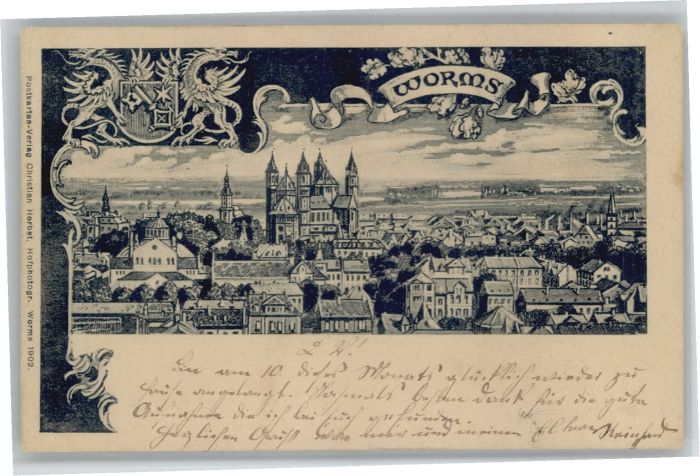 WORMS
Postkarten-Verlag Christian Herbst, Hofphotogr. Worms 1902.
L. V.!
Bin am 10 dieses Monats glücklich wieder zu
Hause angelangt. Nochmals besten Dank für die gute
Aufnahme die ich bei Euch gefunden.
Herzlichen Gruß von mir und meinen Eltern Reinhard